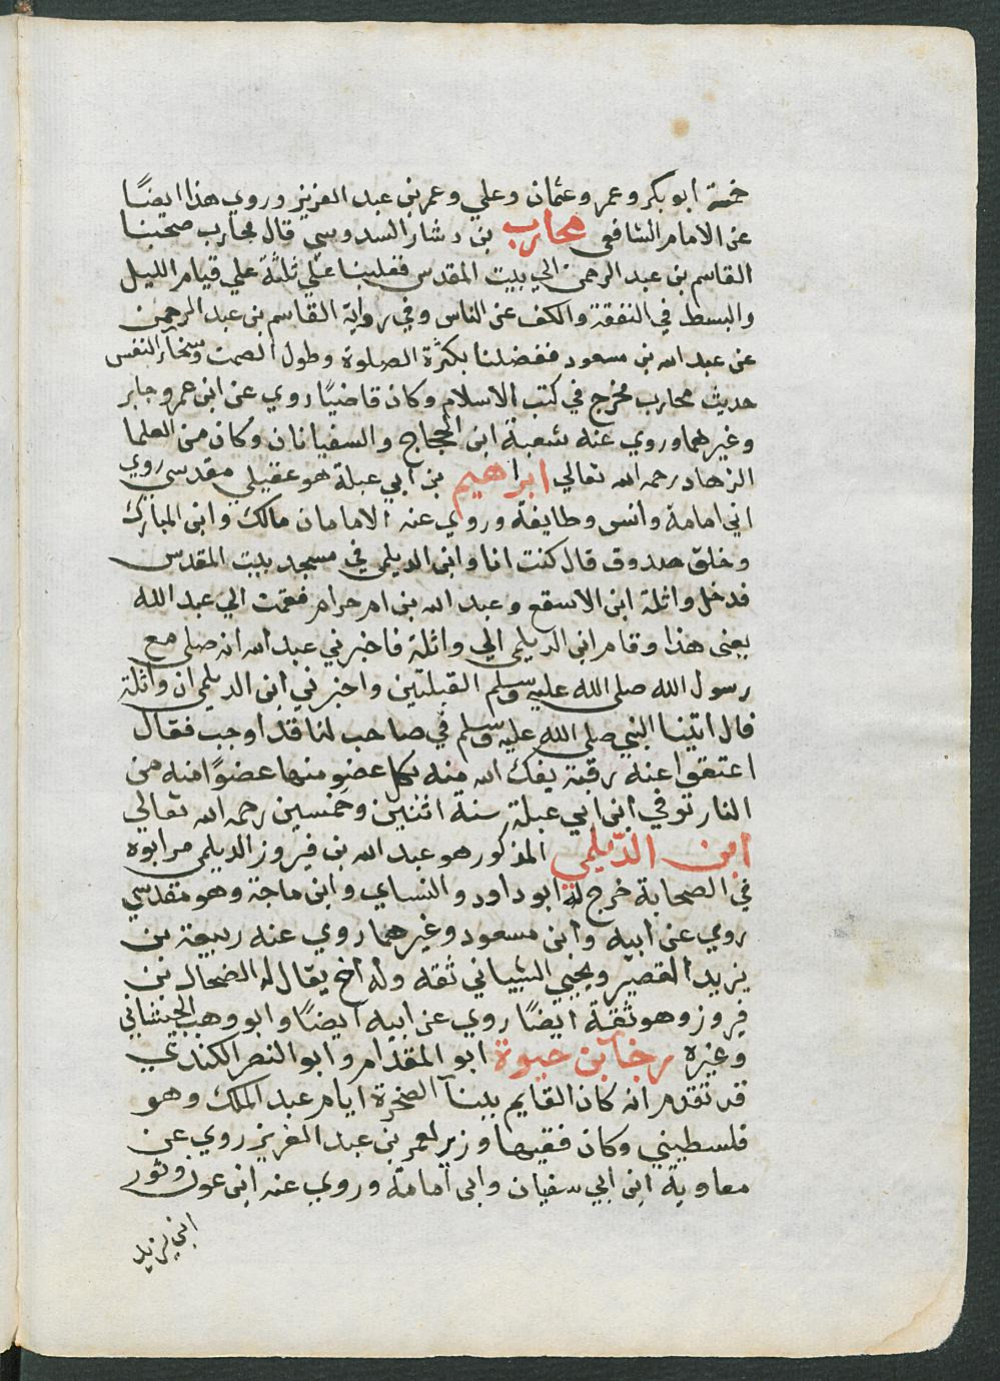 خمسة ابو بكر وعمر وعثمان وعلي وعمر بن عبد العزيز وروي هذا ايضًا
عن الامام الشافعي محارب بن دثار السدوسي قال محارب صحبنا
القاسم بن عبد الرحمن الي بيت المقدس فغلبنا علي ثلثة علي قيام الليل
والبسط في النفقة والكف عن الناس وفي رواية القاسم بن عبد الرحمن
عن عبد الله بن مسعود ففضلنا بكثرة الصلوة وطول الصمت وسخآ النفس
حديث محارب مخرج في كتب الاسلام وكان قاضيًا روي عن ابن عمر وجابر
وغيرهما وروي عنه شعبة ابن الحجاج والسفيانان وكان من العلما
الزهاد رحمه الله تعالي ابراهيم بن ابي عبلة هو عقيلي مقدسي روي
ابي امامة وانس وطايفة وروي عنه الامامان مالك وابن المبارك
وخلق صدوق قال كنت انا وابن الديلمي في مسجد بيت المقدس
فدخل واثلة ابن الاسقع وعبد الله بن ام حرام فقمت الي عبد الله
يعني هذا وقام ابن الديلمي الي واثلة فاخبرني عبد الله انه صلي مع
رسول الله صلي الله عليه وسلم القبلتين واخبرني ابن الديلمي ان واثلة
قال اتينا النبي صلي الله عليه وسلم في صاحب لنا قد اوجب فقال
اعتقوا عنه رقبة يفك الله منه بكل عضو منها عضوًا منه من
النار توفي ابن ابي عبلة سنة اثنين وخمسين رحمه الله تعالي
ابن الدّيلمي المذكور هو عبد الله بن فيروز الديلمي مر ابوه
في الصحابة خرج له ابو داود والنساي وابن ماجة وهو مقدسي
روي عن ابيه وابن مسعود وغيرهما روي عنه ربيعة بن
يزيد القصير ويحيي الشيباني ثقة وله اخ يقال له الضحاك بن
فيروز وهو ثقة ايضًا روي عن ابيه ايضًا وابو وهب الجيشاني
وغيره رجآ بن حيوة ابو المقدام وابو النصر الكندي
قد تقدم انه كان القايم ببنآ الصخرة ايام عبد الملك وهو
فلسطيني وكان فقيها وزير لعمر بن عبد العزيز روي عن
معاوية ابن ابي سفيان وابي امامة وروي عنه ابن عون وثور
ابن يزيد